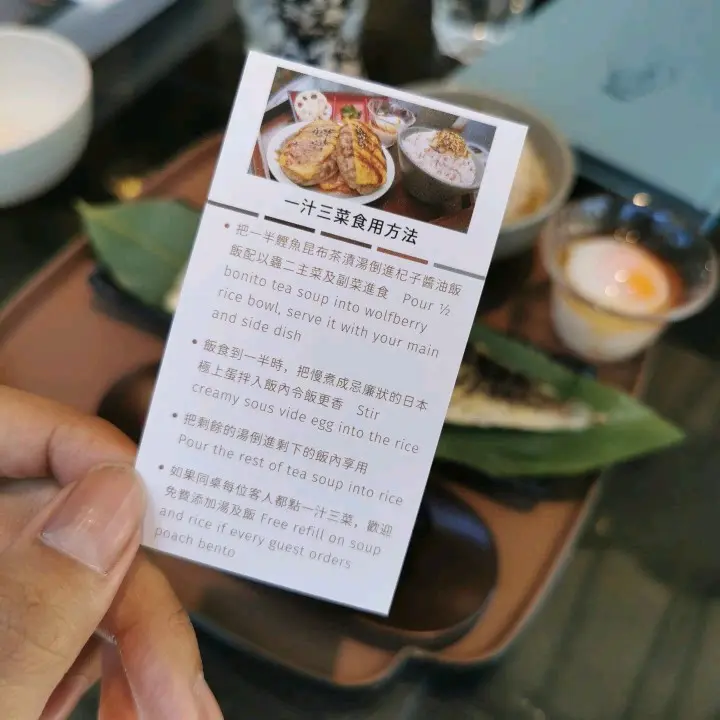 一汁三菜食用方法
• 把一半鰹魚昆布茶漬湯倒進杞子醬油飯
飯配以蟲二主菜及副菜進食 Pour ½
bonito tea soup into wolfberry
rice bowl, serve it with your main
and side dish
• 飯食到一半時，把慢煮成忌廉狀的日本
極上蛋拌入飯內令飯更香 Stir
creamy sous vide egg into the rice
• 把剩餘的湯倒進剩下的飯內享用
Pour the rest of tea soup into rice
• 如果同桌每位客人都點一汁三菜，歡迎
免費添加湯及飯 Free refill on soup
and rice if every guest orders
poach bento